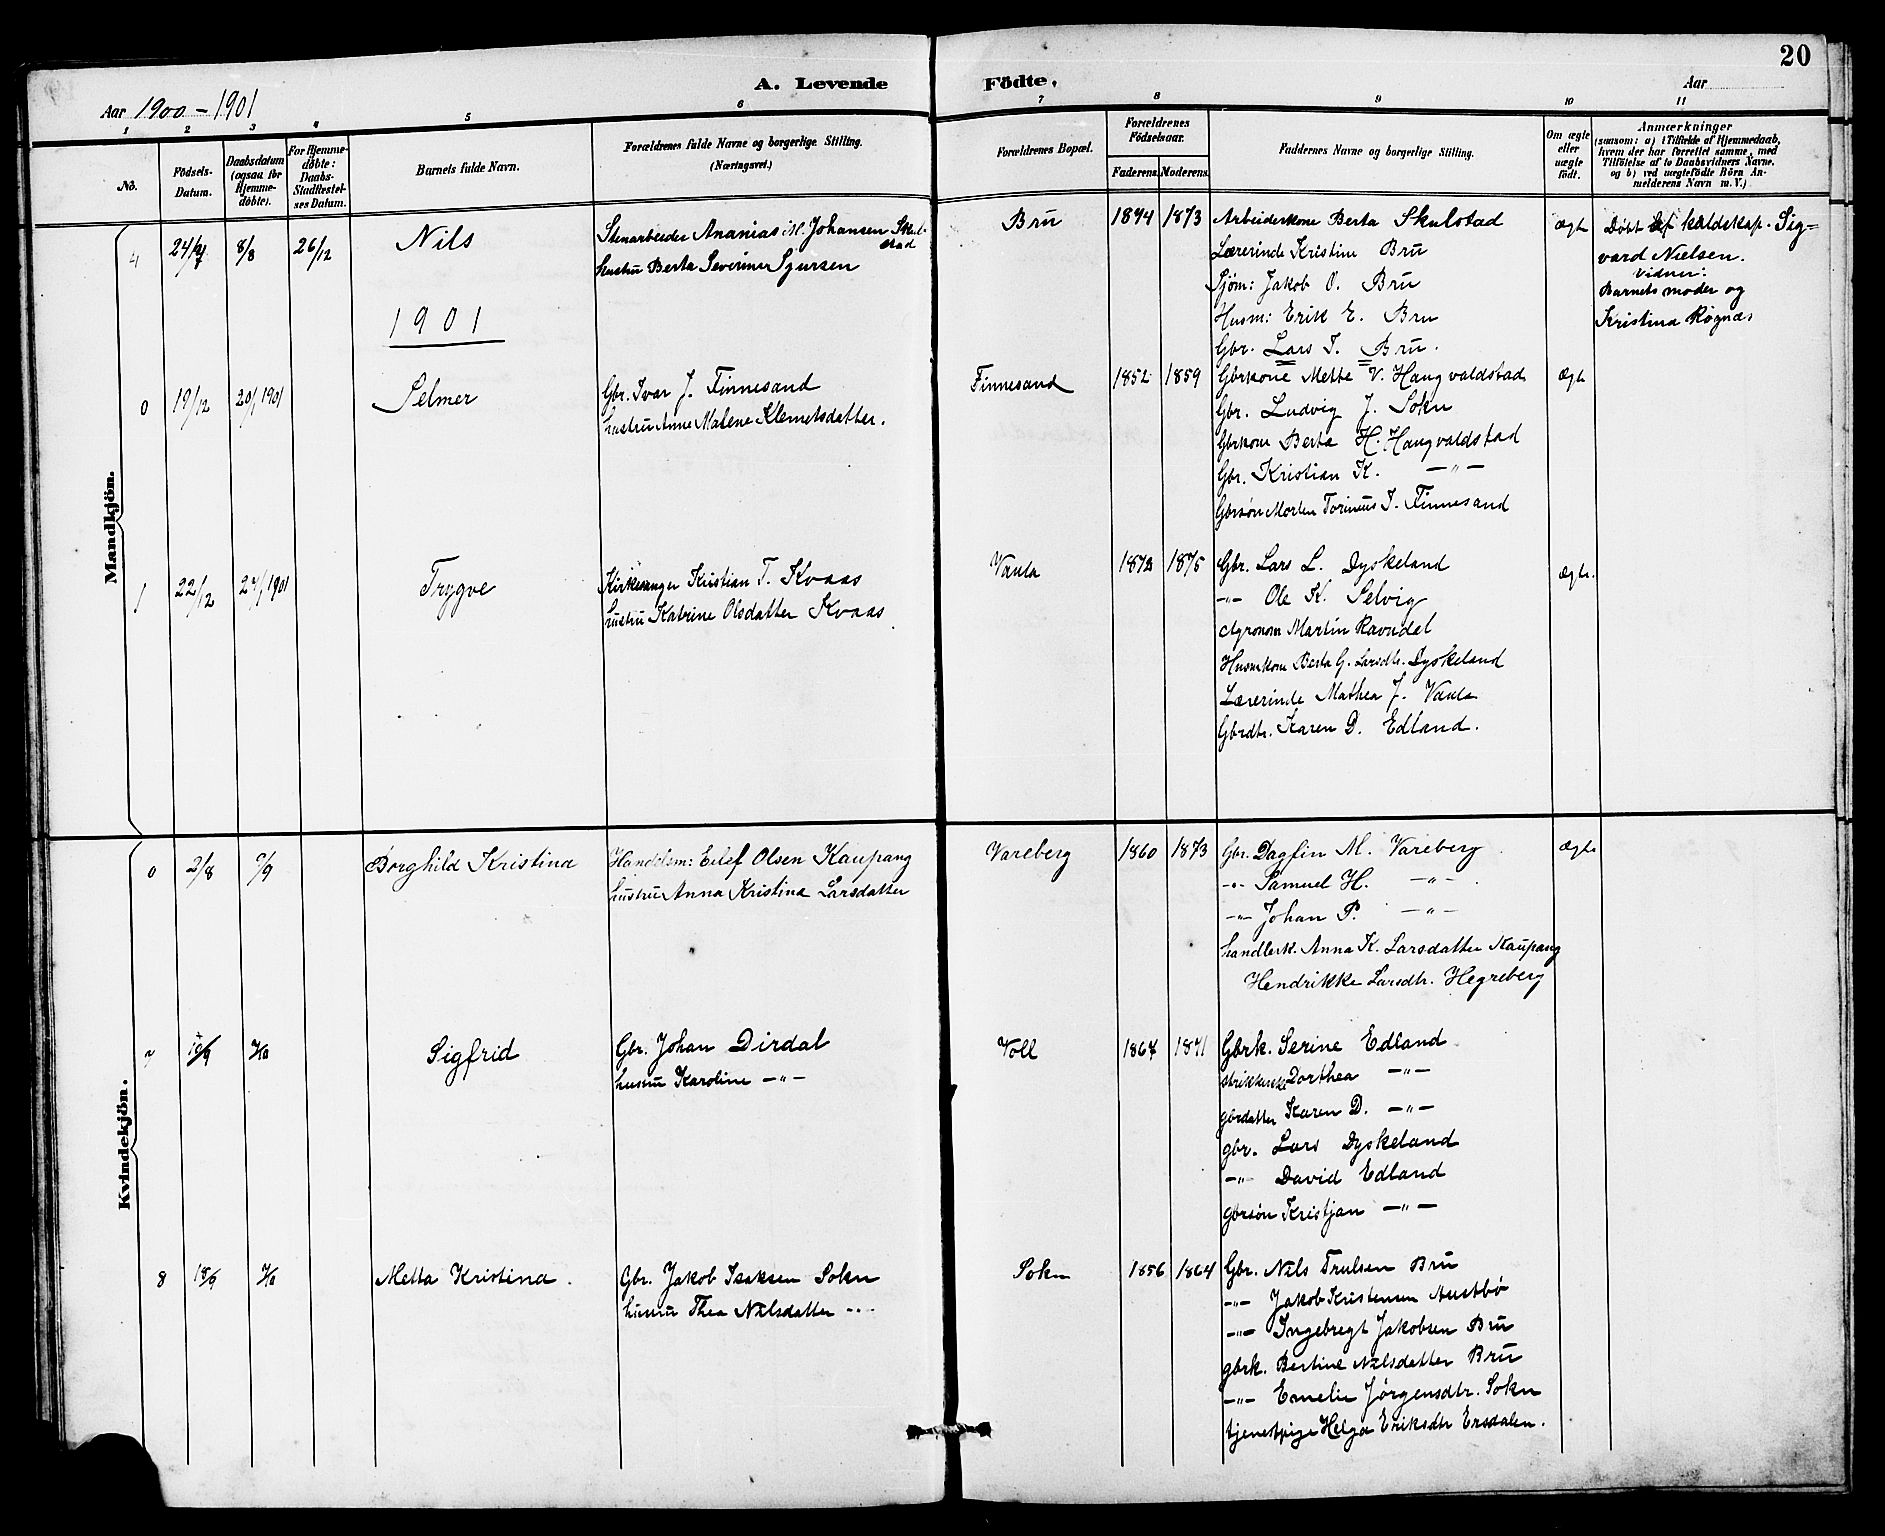 20
A. Levende Födte.
Aar 1900-1901
Aar
1 2 3 4 5 6 7 8 9 10 11
No.
Födsels-Datum.
Daabsdatum (ogsaa for Hjemmedöbte).
For Hjemmedöbte: Daabs-Stadfestelses Datum.
Barnets fulde Navn.
Forældrenes fulde Navne og borgerlige Stilling. (Næringsvei.)
Forældrenes Bopæl.
Forældrenes Födselsaar.
Faderens. Moderens.
Faddernes Navne og borgerlige Stilling.
Om ægte eller uægte födt.
Anmærkninger (saasom: a) i Tilfælde af Hjemmedaab, hvem der har forrettet samme, med Tilföielse af to Daabsvidners Navne, og b) ved uægtefödte Börn Anmelderens Navn m. V.)
Mandkjön.
4 8/8 26/12 Nils
Stenarbeider Ananias M. Johansen Skulstad
hustru Berta Severine Sjursen
Bru 1874 1873
Arbeiderkone Berta Skulstad
Lærerinde Kristine Bru
Sjøm: Jakob O. Bru
Husm: Erik E. Bru
Gbr. Lars T. Bru.
ægte
Døbt af kaldskap. Sig=
vard Nielsen.
Vidner:
Barnets moder og
Kristina Rognæs
1901
0 19/12 20/1 1901 Selmer
Gbr. Ivar J. Finnesand
hustru Anne Malene Klemetsdatter.
Finnesand 1852 1859
Gbrkone Mette V. Haugvaldstad
Gbr. Ludvig J. Sokn
Gbrkone Berta H. Haugvaldstad
Gbr. Kristian K. -"-
Gbrsøn Morten Torineus I. Finnesand
ægte
1 22/12 27/1 1901 Trygve
Kirkesanger Kristian T. Kvaas
hustru Katrine Olsdatter Kvaas
Vaula 1872 1875
Gbr. Lars L. Dyskeland
-"- Ole K. Selvig
Agronom Martin Ravndal
Husmkone Berta G. Larsdtr. Dyskeland
Lærerinde Mathea J. Vaula
Gbrdtr. Karen D. Edland.
ægte.
Kvindekjön.
0 2/8 9/9 Borghild Kristina
Handelsm: Eilef Olsen Kaupang
hustru Anna Kristina Larsdatter
Vareberg 1860 1873
Gbr. Dagfin M. Vareberg
-"- Samuel H. -"-
-"- Johan P. -"-
handlerk. Anna K. Larsdatter Kaupang
Hendrikke Larsdtr. Hegreberg
ægte
7 10/9 7/10 Sigfrid
Gbr. Johan Dirdal
hustru Karoline -"-
Voll 1867 1871
Gbrk. Serine Edland
Dorthea -"-
gbrdatter Karen D. -"-
gbr. Lars Dyskeland
-"- David Edland
gbrsøn Kristjan -"-
8 18/9 7/10 Metta Kristina.
Gbr. Jakob Isaksen Sokn
hustru Thea Nilsdatter -"-
Sokn 1856 1864
Gbr. Nils Trulsen Bru
-"- Jakob Kristensen Austbø
-"- Ingebregt Jakobsen Bru
gbrk. Bertine Nilsdatter Bru
-"- Emelie Jørgensdtr. Sokn
tjenestpige Helga Eriksdtr Ersdalen.